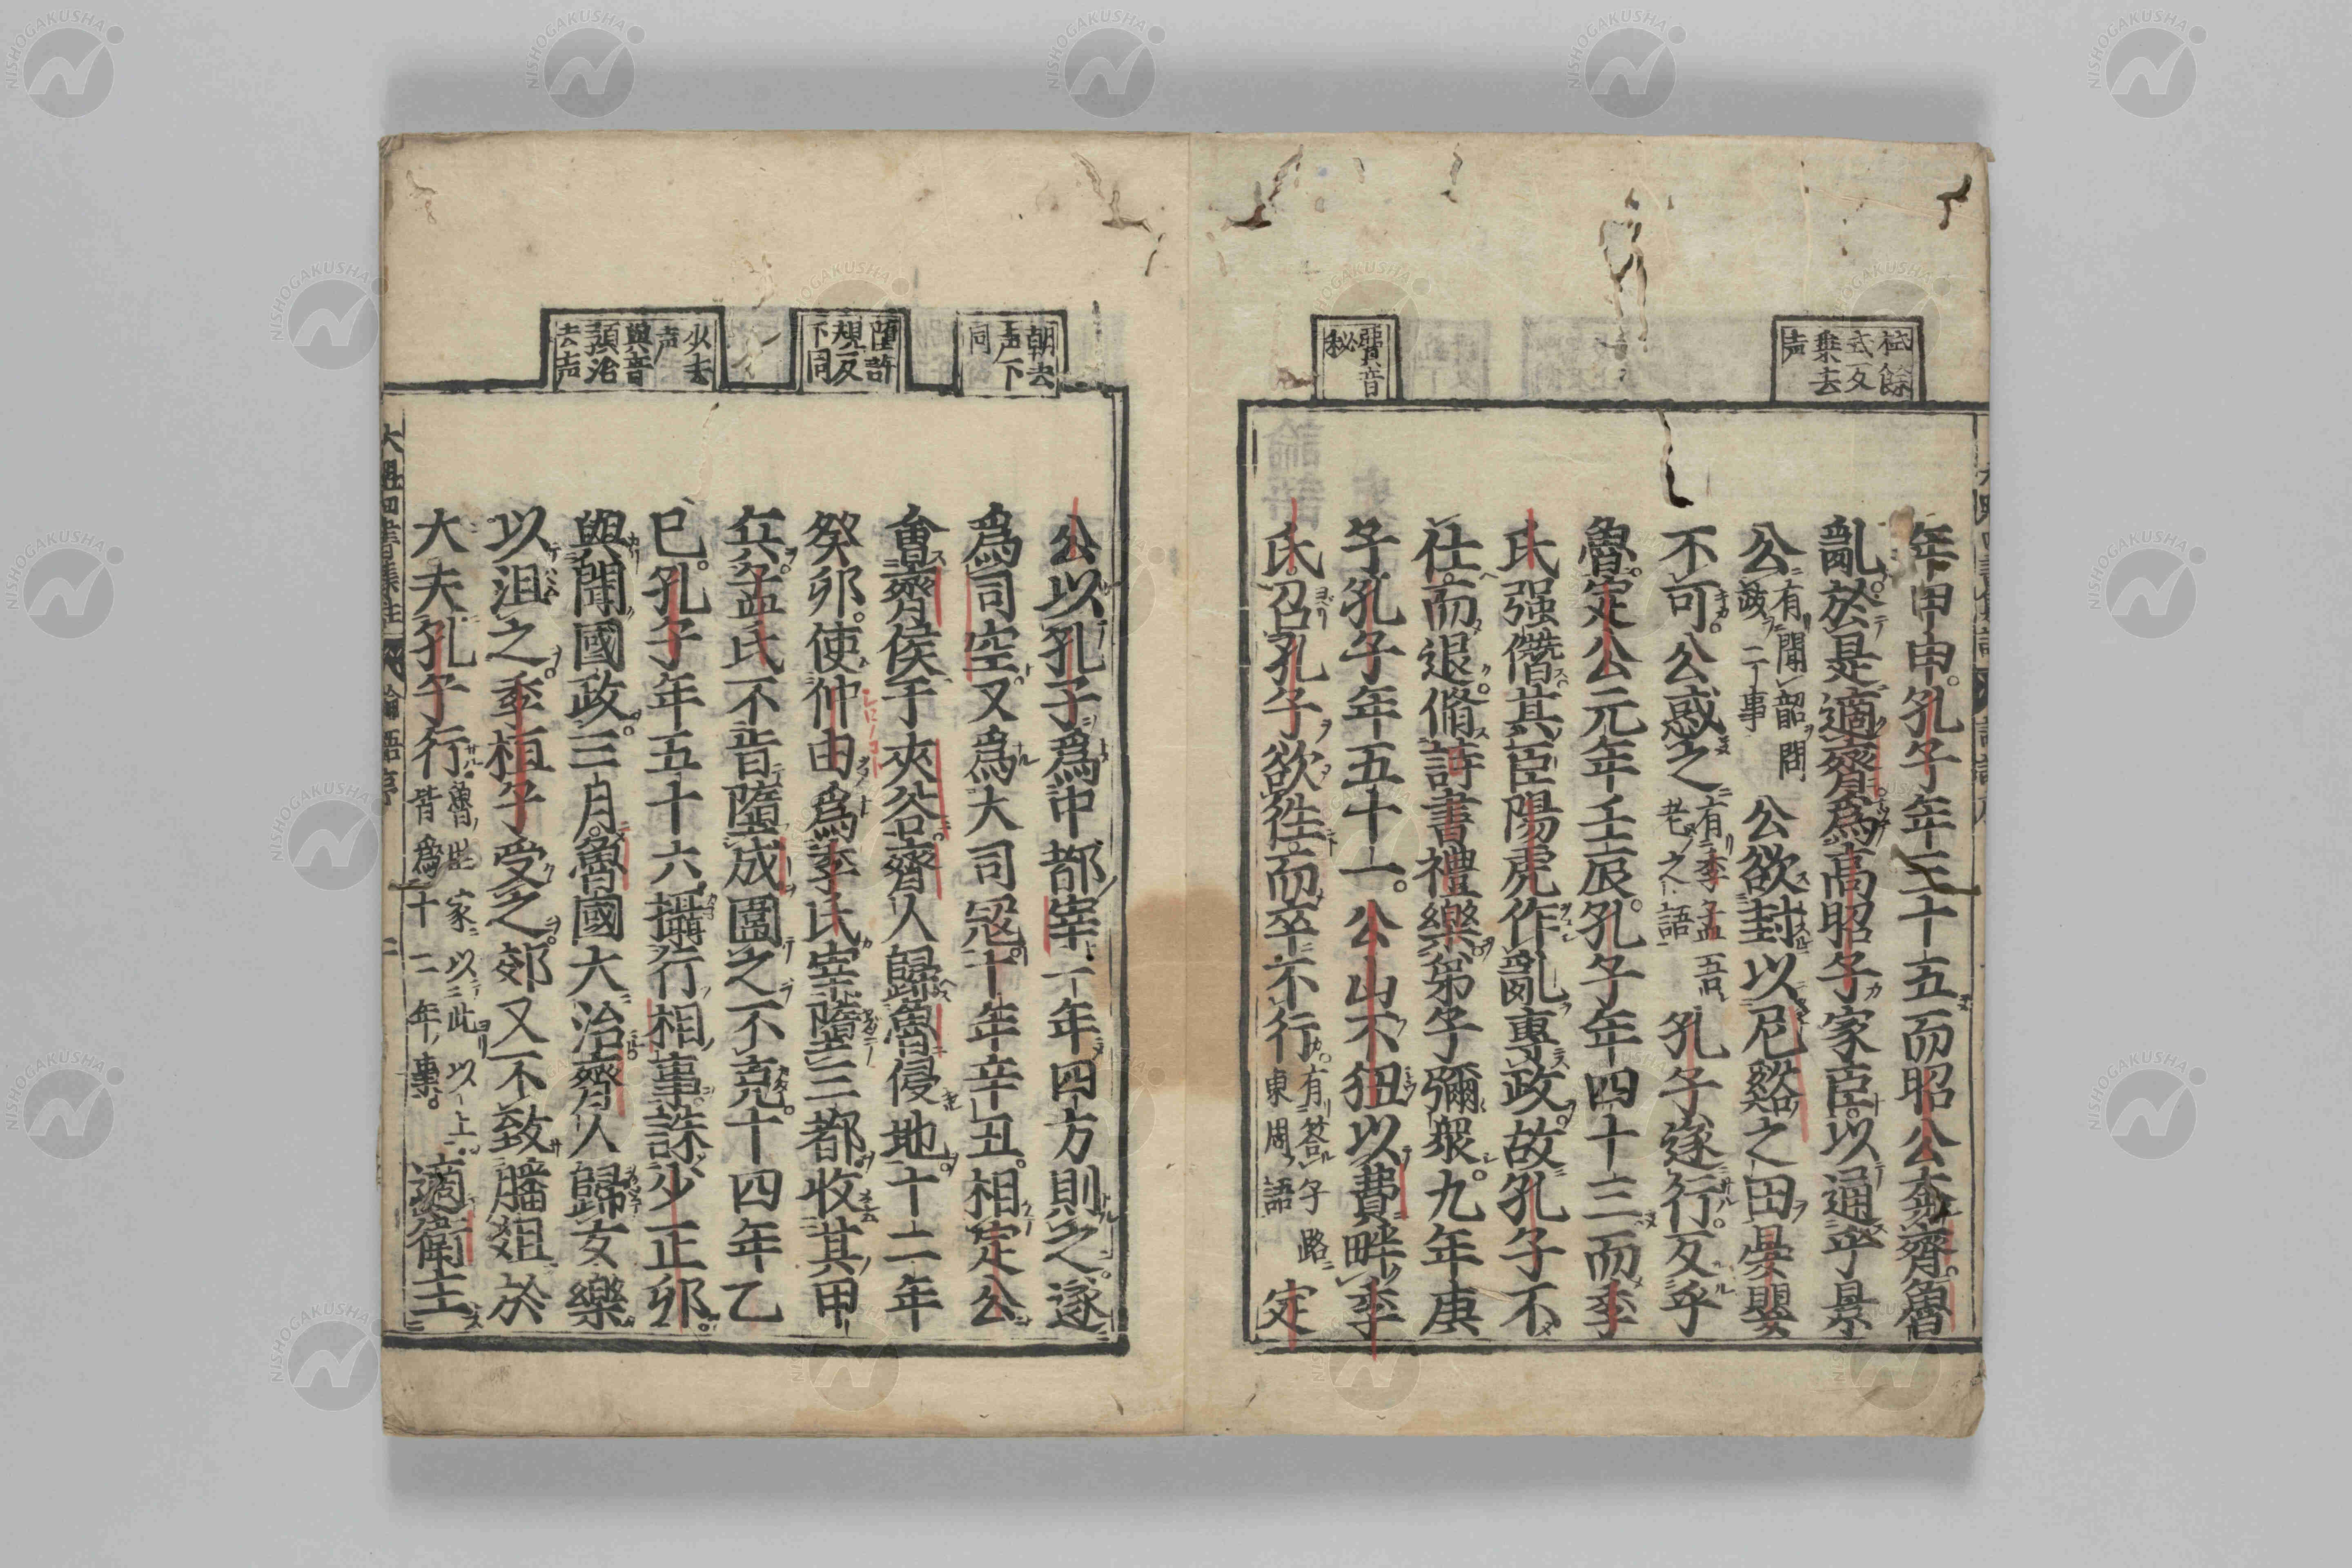 樜餘
式反
乗去
声
費音
秘
年甲申孔子年三十五而昭公奔齊魯
亂於是適齊爲高昭子家臣以通乎景
公有聞韶問政二事公欲封以尼谿之田晏嬰
不可公惑之有季孟吾老之語孔子遂行反乎
魯定公元年壬辰孔子年四十三而季
氏强僭其臣陽虎作亂專政故孔子不
仕而退脩詩書禮樂弟子彌衆九年庚
子孔子年五十一公山不狃以費畔季
氏召孔子欲徃而卒不行有答子路東周語定
朝去
声下
同
堕許
規反
下同
少去
声
與音
預治
去声
公以孔子爲中都宰一年四方則之遂
爲司空又爲大司冦十年辛丑相定公
會齊侯于夾谷齊人歸魯侵地十二年
癸卯使仲由爲季氏宰墮三都收其甲
兵孟氏不肯墮成圍之不克十四年乙
巳孔子年五十六攝行相事誅少正卯
與聞國政三月魯國大治齊人歸女樂
以沮之季桓子受之郊又不致膰俎於
大夫孔子行魯世家以此以上皆爲十二年事適衛主
大魁四書集註 論語序 二